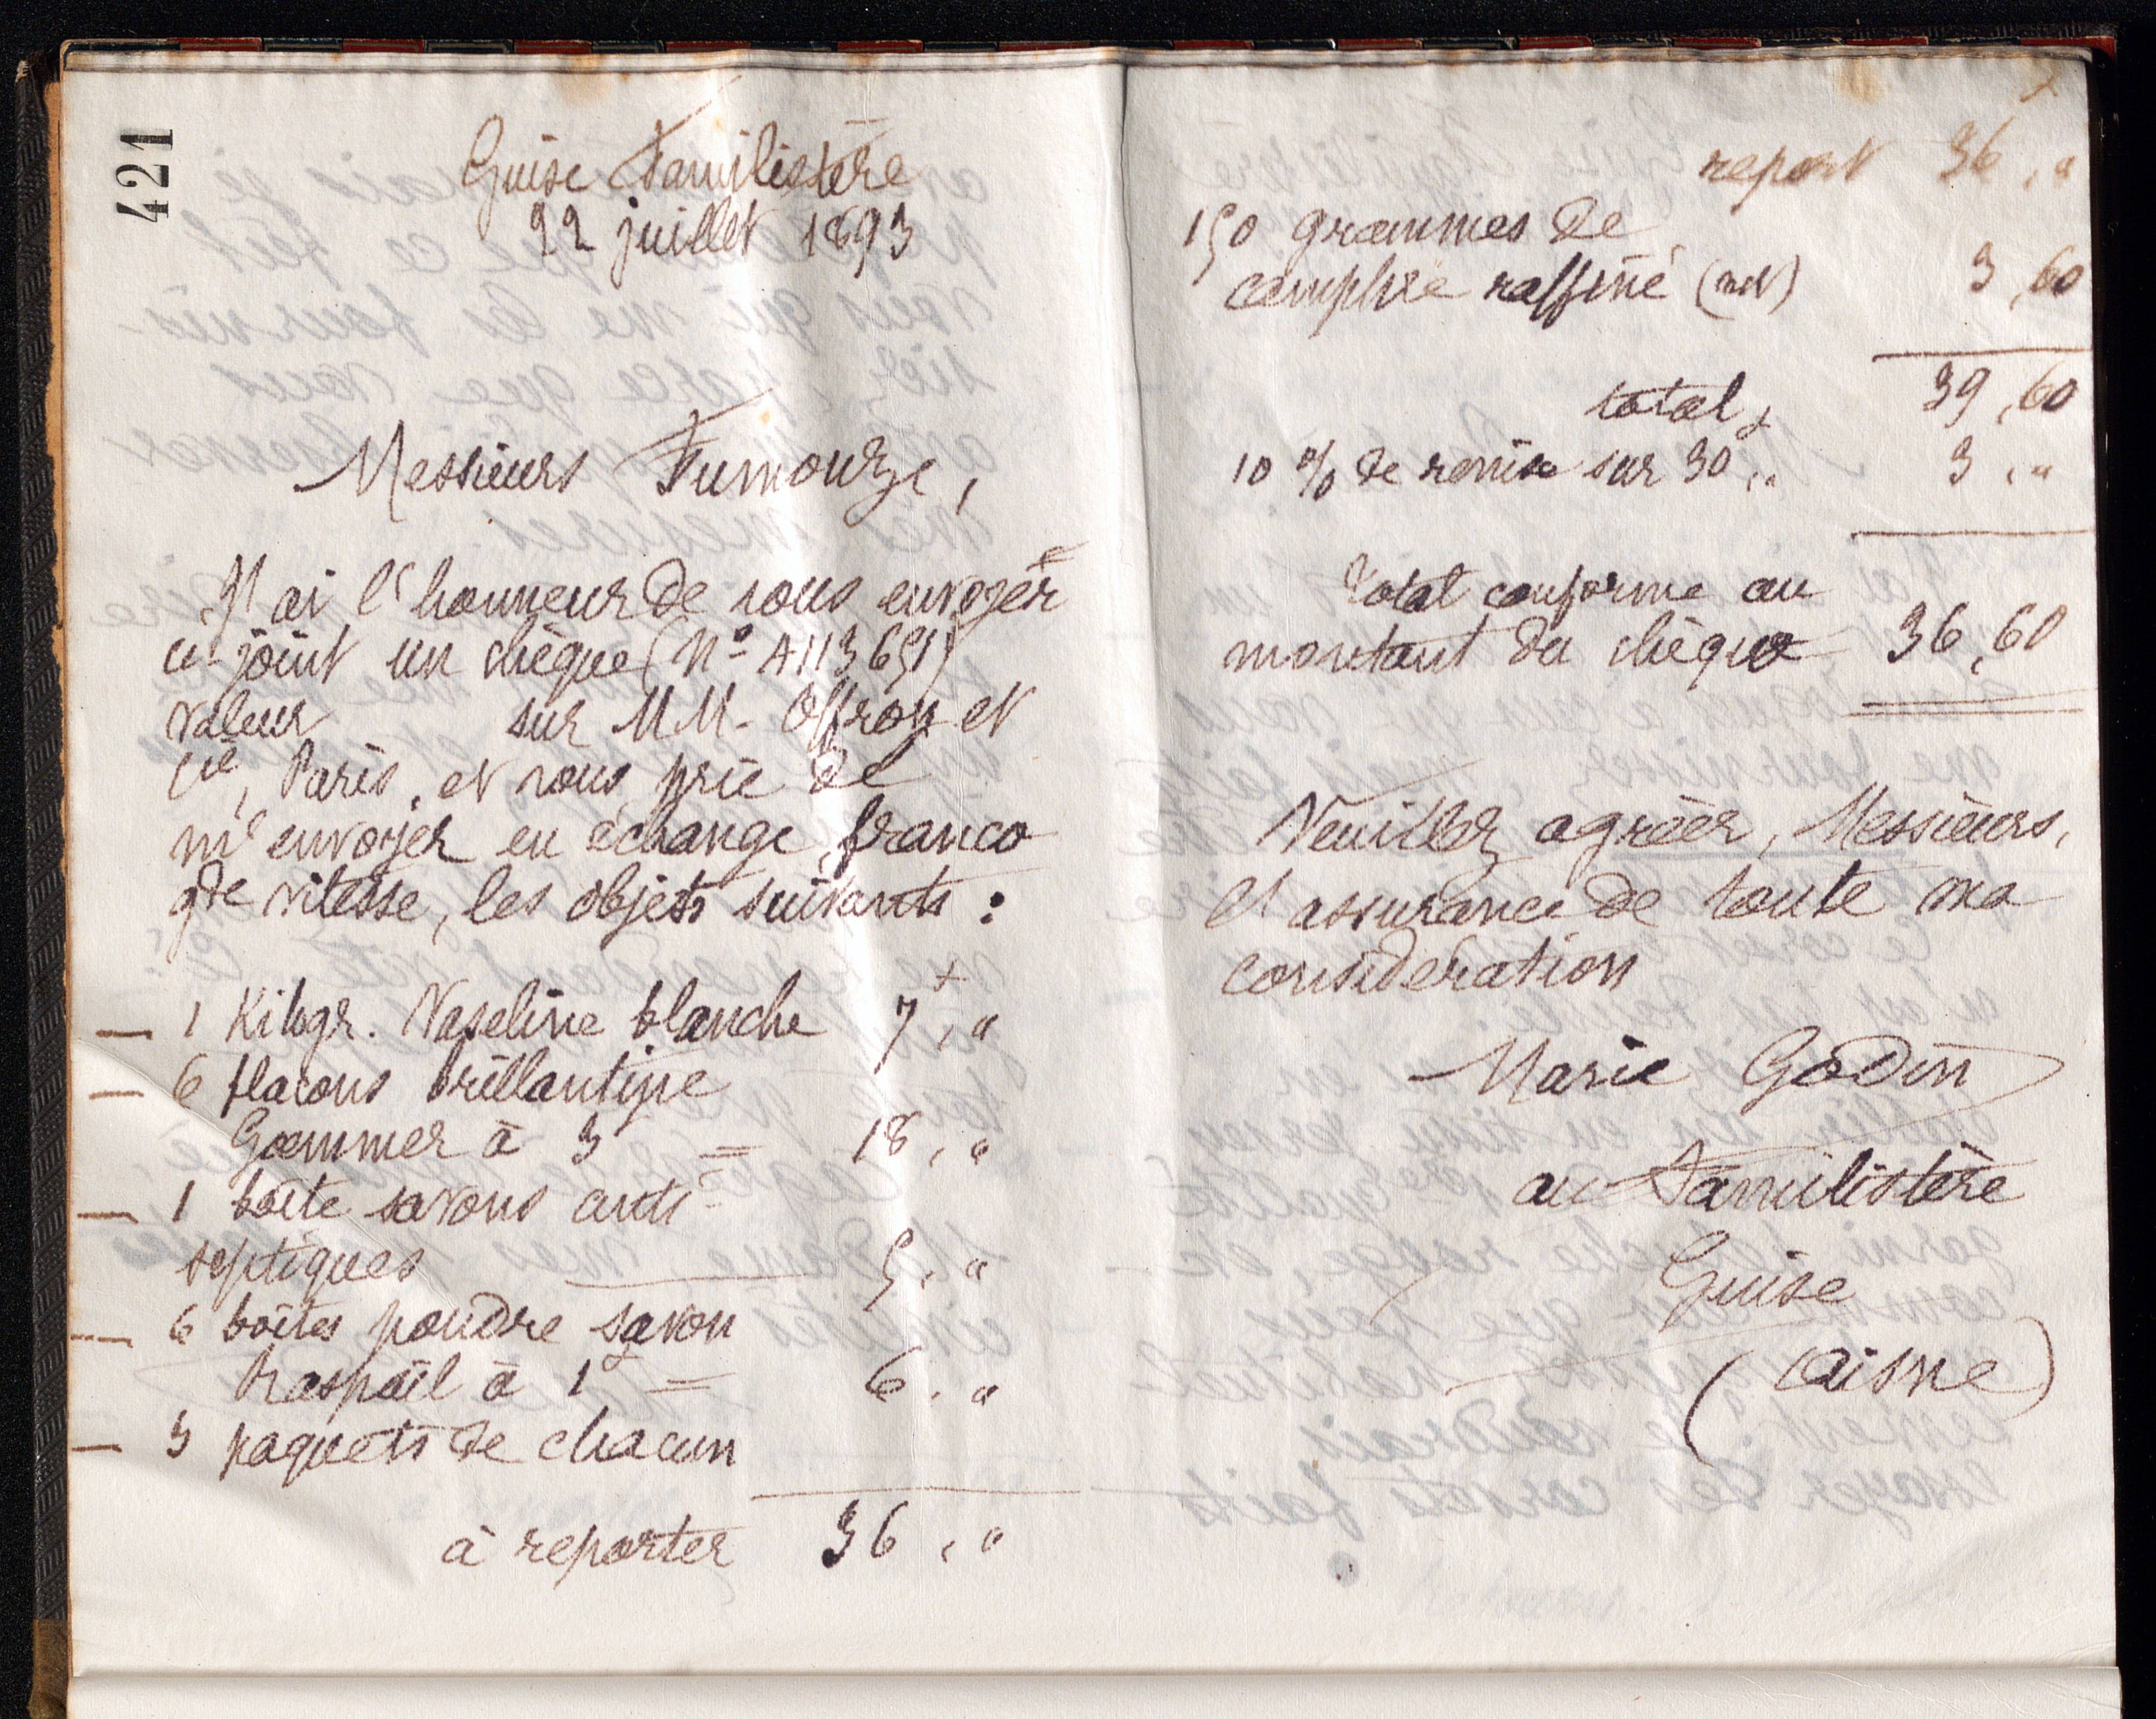 421
Guise Familistère
22 juillet 1893
Messieurs Fumouze,
J'ai l'honneur de vous envoyer
ci-joint un chèque (N° A113651)
valeur sur MM. Offroy et
Cie, Paris, et vous prie de
m'envoyer en échange, franco
gde vitesse, les objets suivants :
— 1 Kilogr. Vaseline blanche 7,"
— 6 flacons brillantine
Gommer à 3 = 18,"
— 1 boîte savons anti-
septiques — 5,"
— 6 boîtes poudre savon
Raspail à 1 = 6,"
— 3 paquets de chacun
à reporter 36,"
report 36,"
150 grammes de
camphre raffiné (net) 3,60
total, 39,60
10 % de remise sur 30," 3,"
Total conforme au
montant du chèque 36,60
Veuillez agréer, Messieurs,
l'assurance de toute ma
considération
Marie Godin
au Familistère
Guise
(Aisne)